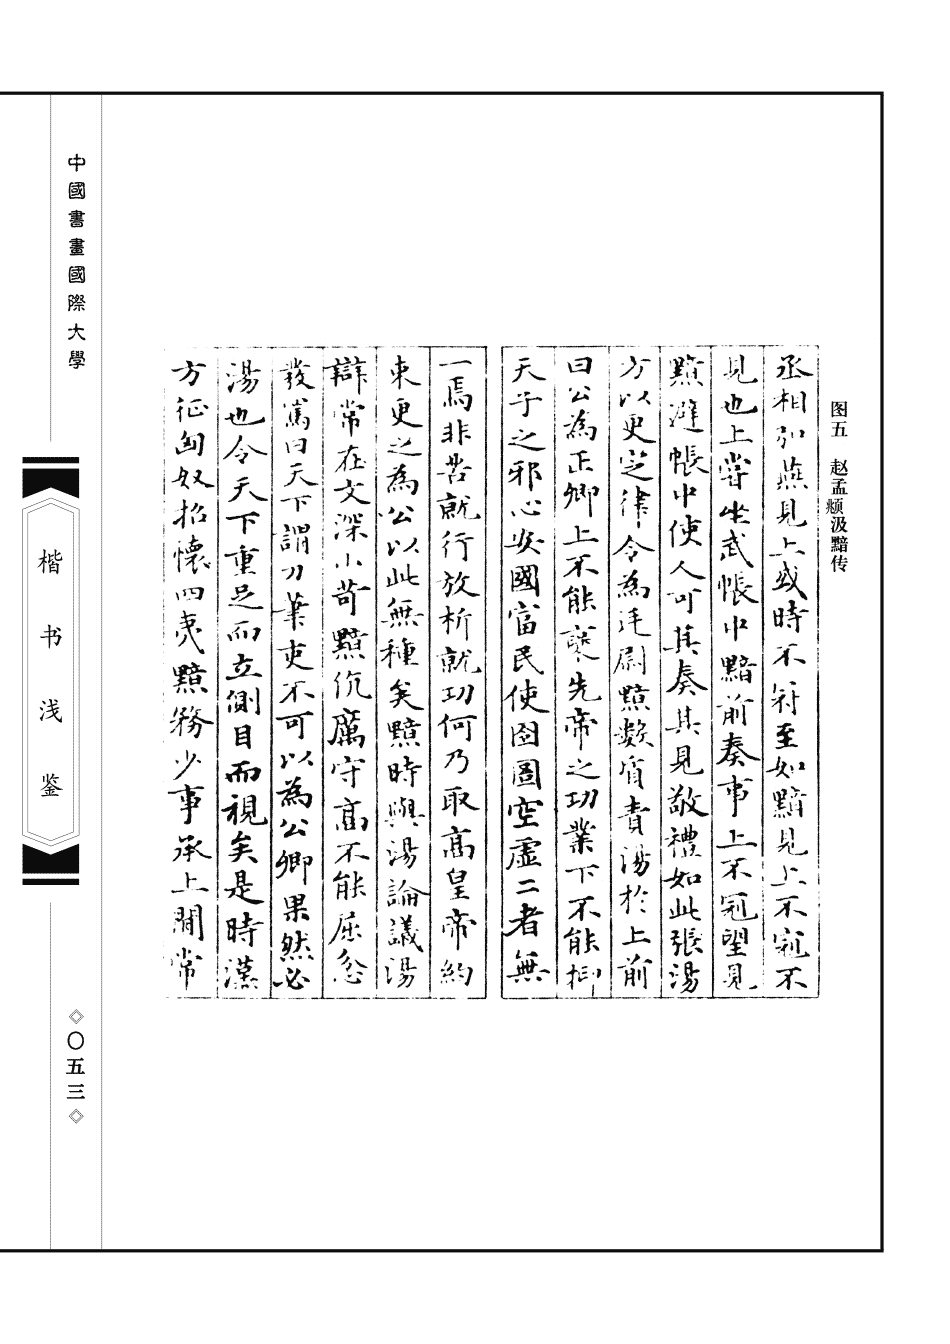 图五 赵孟頫汲黯传
丞相弘燕見上或時不冠至如黯見上不冠不
見也上嘗坐武帳中黯前奏事上不冠望見
黯避帳中使人可其奏其見敬禮如此張湯
方以更定律令為廷尉黯數質責湯於上前
曰公為正卿上不能襃先帝之功業下不能抑
天子之邪心安國富民使囹圄空虛二者無
一焉非苦就行放析就功何乃取高皇帝約
束更之為公以此無種矣黯時與湯論議湯
辯常在文深小苛黯伉厲守高不能屈忿
發罵曰天下謂刀筆吏不可以為公卿果然必
湯也令天下重足而立側目而視矣是時漢
方征匈奴招懷四夷黯務少事承上閒常
中國書畫國際大學
楷书浅鉴
〇五三